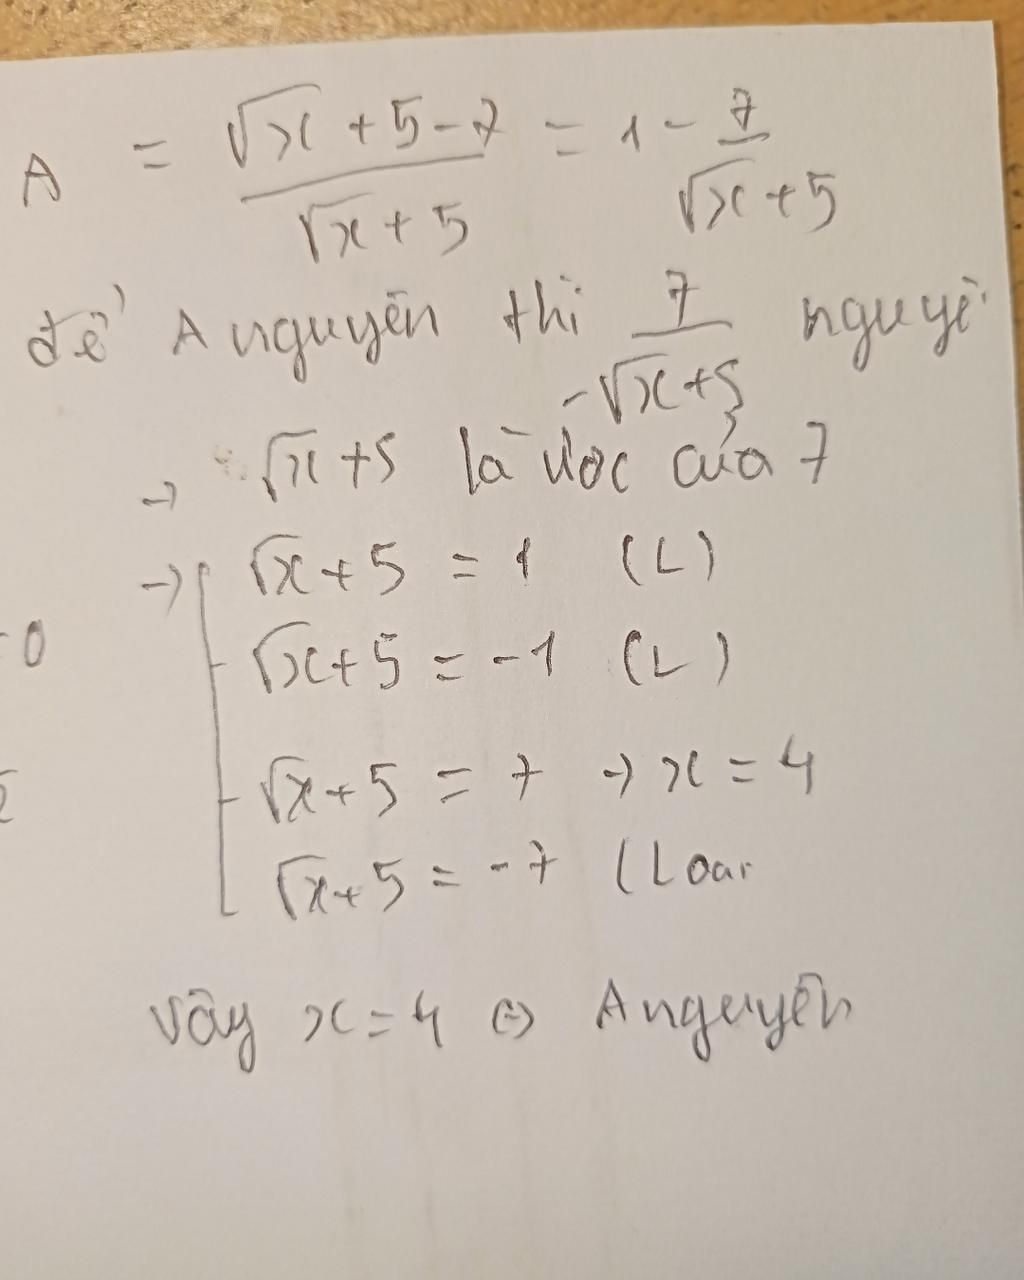 A = (√x + 5 - 7)/(√x + 5) = 1 - 7/(√x + 5)
để A nguyên thì 7/(-√x + 5) nguyê
→ √x + 5 là ước của 7
→ √x + 5 = 1 (L)
= 0
√x + 5 = -1 (L)
√x + 5 = 7 → x = 4
√x + 5 = -7 (Loại
Vậy x = 4 ⇔ A nguyên